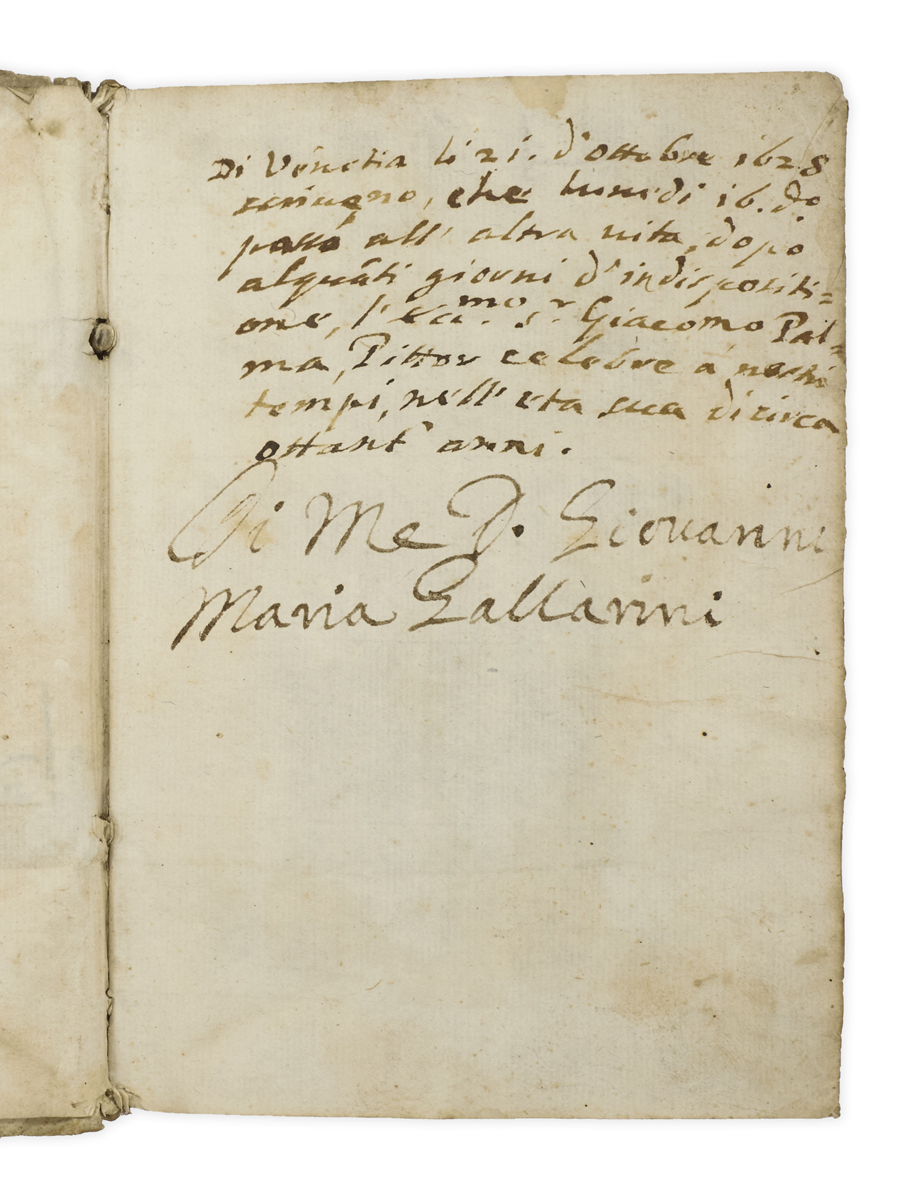 Di Venetia li 21. d'ottobre 1628
scriueno, che lunedi 16. do
passò all' altra uita, dopo
alquãti giorni d'indispositi=
one, l'ecc.mo s.r Giacomo Pal=
ma, Pittor celebre a' nostri
tempi, nell' eta sua di circa
ottant' anni.
Di Me D. Giovanni
Maria Gallarini